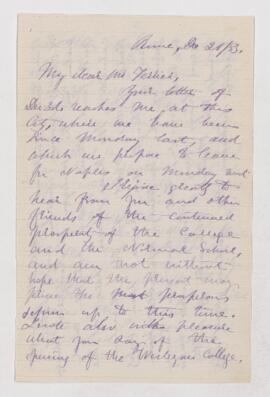 Rome, Dec 20/83.
My dear Mr Forbes,
Your letter of
Dec 3d reaches me, at this
City, where we have been
since Monday last, and
which we propose to leave
for Naples on Monday next
I rejoice greatly to
hear from you and other
friends of the continued
prosperity of the College
and the Normal School,
and am not without
hope that the present may
prove the most prosperous
session up to this time.
I note also with pleasure
what you say of the
opening of the Wesleyan College.